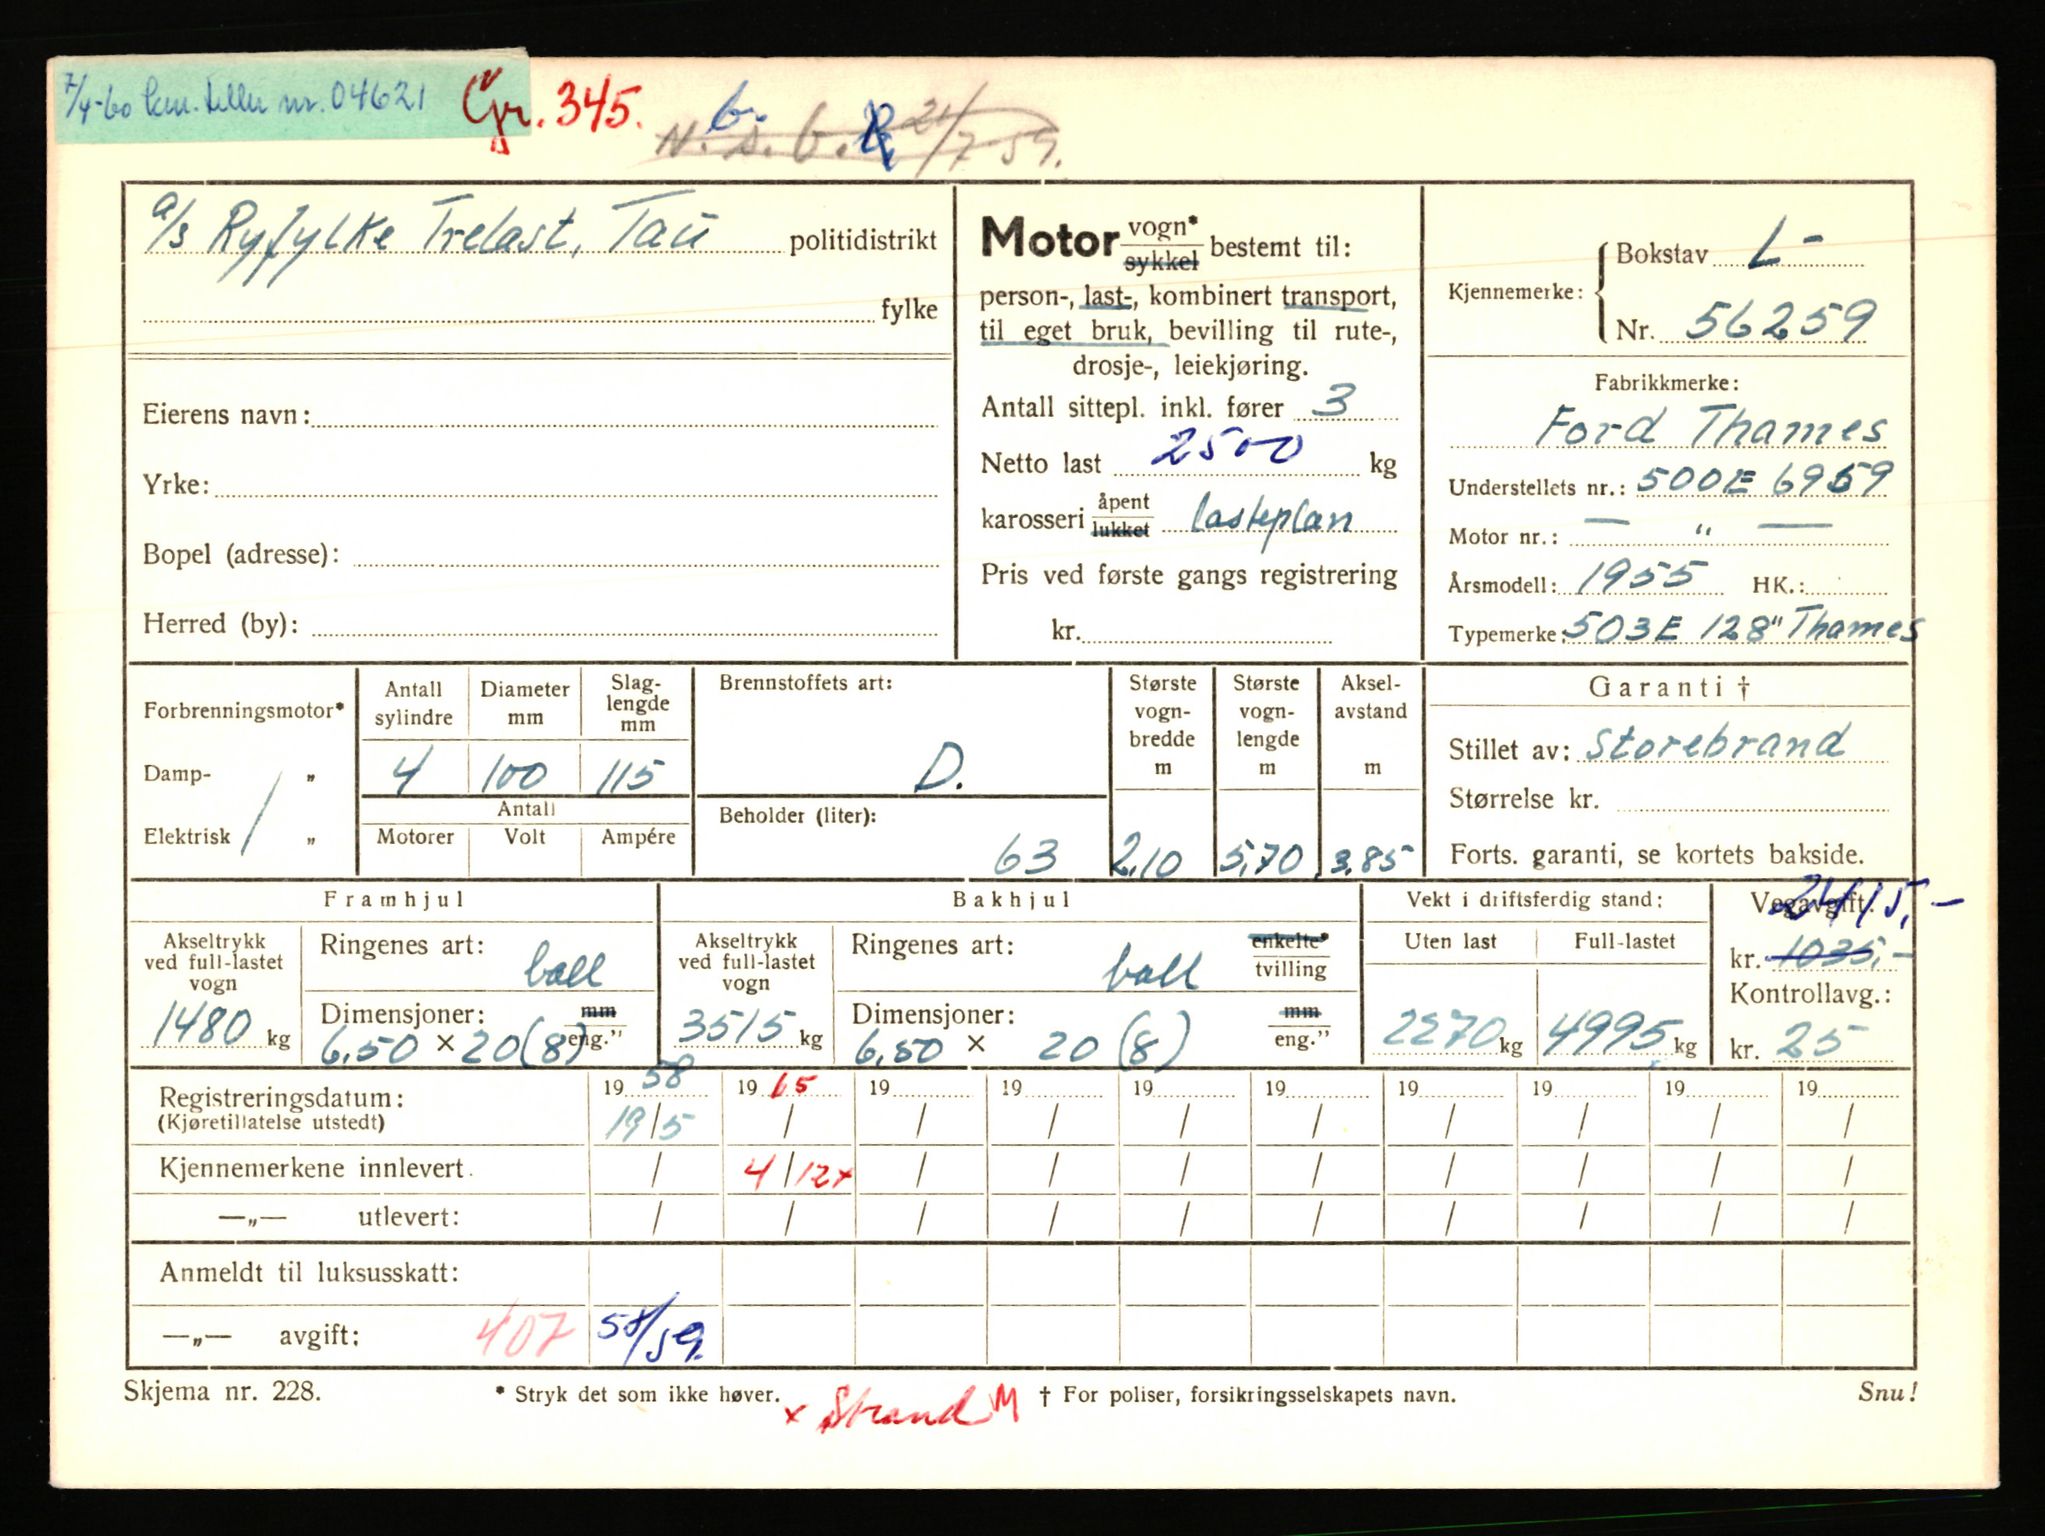 7/4-60 km. teller nr. 04621 Gr. 345.
b.
N. S. b. 21/7-59.
a/s Ryfylke Trelast, Tau politidistrikt
fylke
Eierens navn:
Yrke:
Bopel (adresse):
Herred (by):
Motor vogn* sykkel bestemt til:
person-, last-, kombinert transport,
til eget bruk, bevilling til rute-,
drosje-, leiekjøring.
Antall sittepl. inkl. fører 3
Netto last 2500 kg
karosseri åpent lukket lasteplan
Pris ved første gangs registrering
kr.
Kjennemerke: Bokstav L-
Nr. 56259
Fabrikkmerke:
Ford Thames
Understellets nr.: 500E 6959
Motor nr.: — " —
Årsmodell: 1955 HK.:
Typemerke: 503E 128" Thames
Forbrenningsmotor*
Damp- „
Elektrisk „
Antall sylindre 4
Diameter mm 100
Slag-lengde mm 115
Antall
Motorer Volt Ampére
Brennstoffets art:
D.
Beholder (liter):
63
Største vogn-bredde m 2,10
Største vogn-lengde m 5,70
Aksel-avstand m 3,85
Garanti †
Stillet av: Storebrand
Størrelse kr.
Forts. garanti, se kortets bakside.
Framhjul
Akseltrykk ved full-lastet vogn
1480 kg
Ringenes art: ball
Dimensjoner: mm
6,50 × 20 (8) eng."
Bakhjul
Akseltrykk ved full-lastet vogn
3515 kg
Ringenes art: ball enkelte* tvilling
Dimensjoner: mm
6,50 × 20 (8) eng."
Vekt i driftsferdig stand:
Uten last Full-lastet
2270 kg 4995 kg
Vegavgift: 2415,-
kr. 1035,-
Kontrollavg.:
kr. 25
19 58 19 65 19 19 19 19 19 19 19 19
Registreringsdatum: 19/5 / / / / / / / / /
(Kjøretillatelse utstedt)
Kjennemerkene innlevert. / 4/12x / / / / / / / /
—„— utlevert: / / / / / / / / / /
Anmeldt til luksusskatt:
—„— avgift: 407 58/59.
Skjema nr. 228. * Stryk det som ikke høver. † For poliser, forsikringsselskapets navn. Snu!
x Strand M